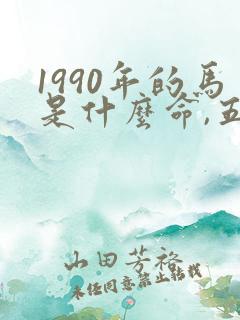 1990年的马
是什麼命,五
山田芳裕
未经同意禁止转载